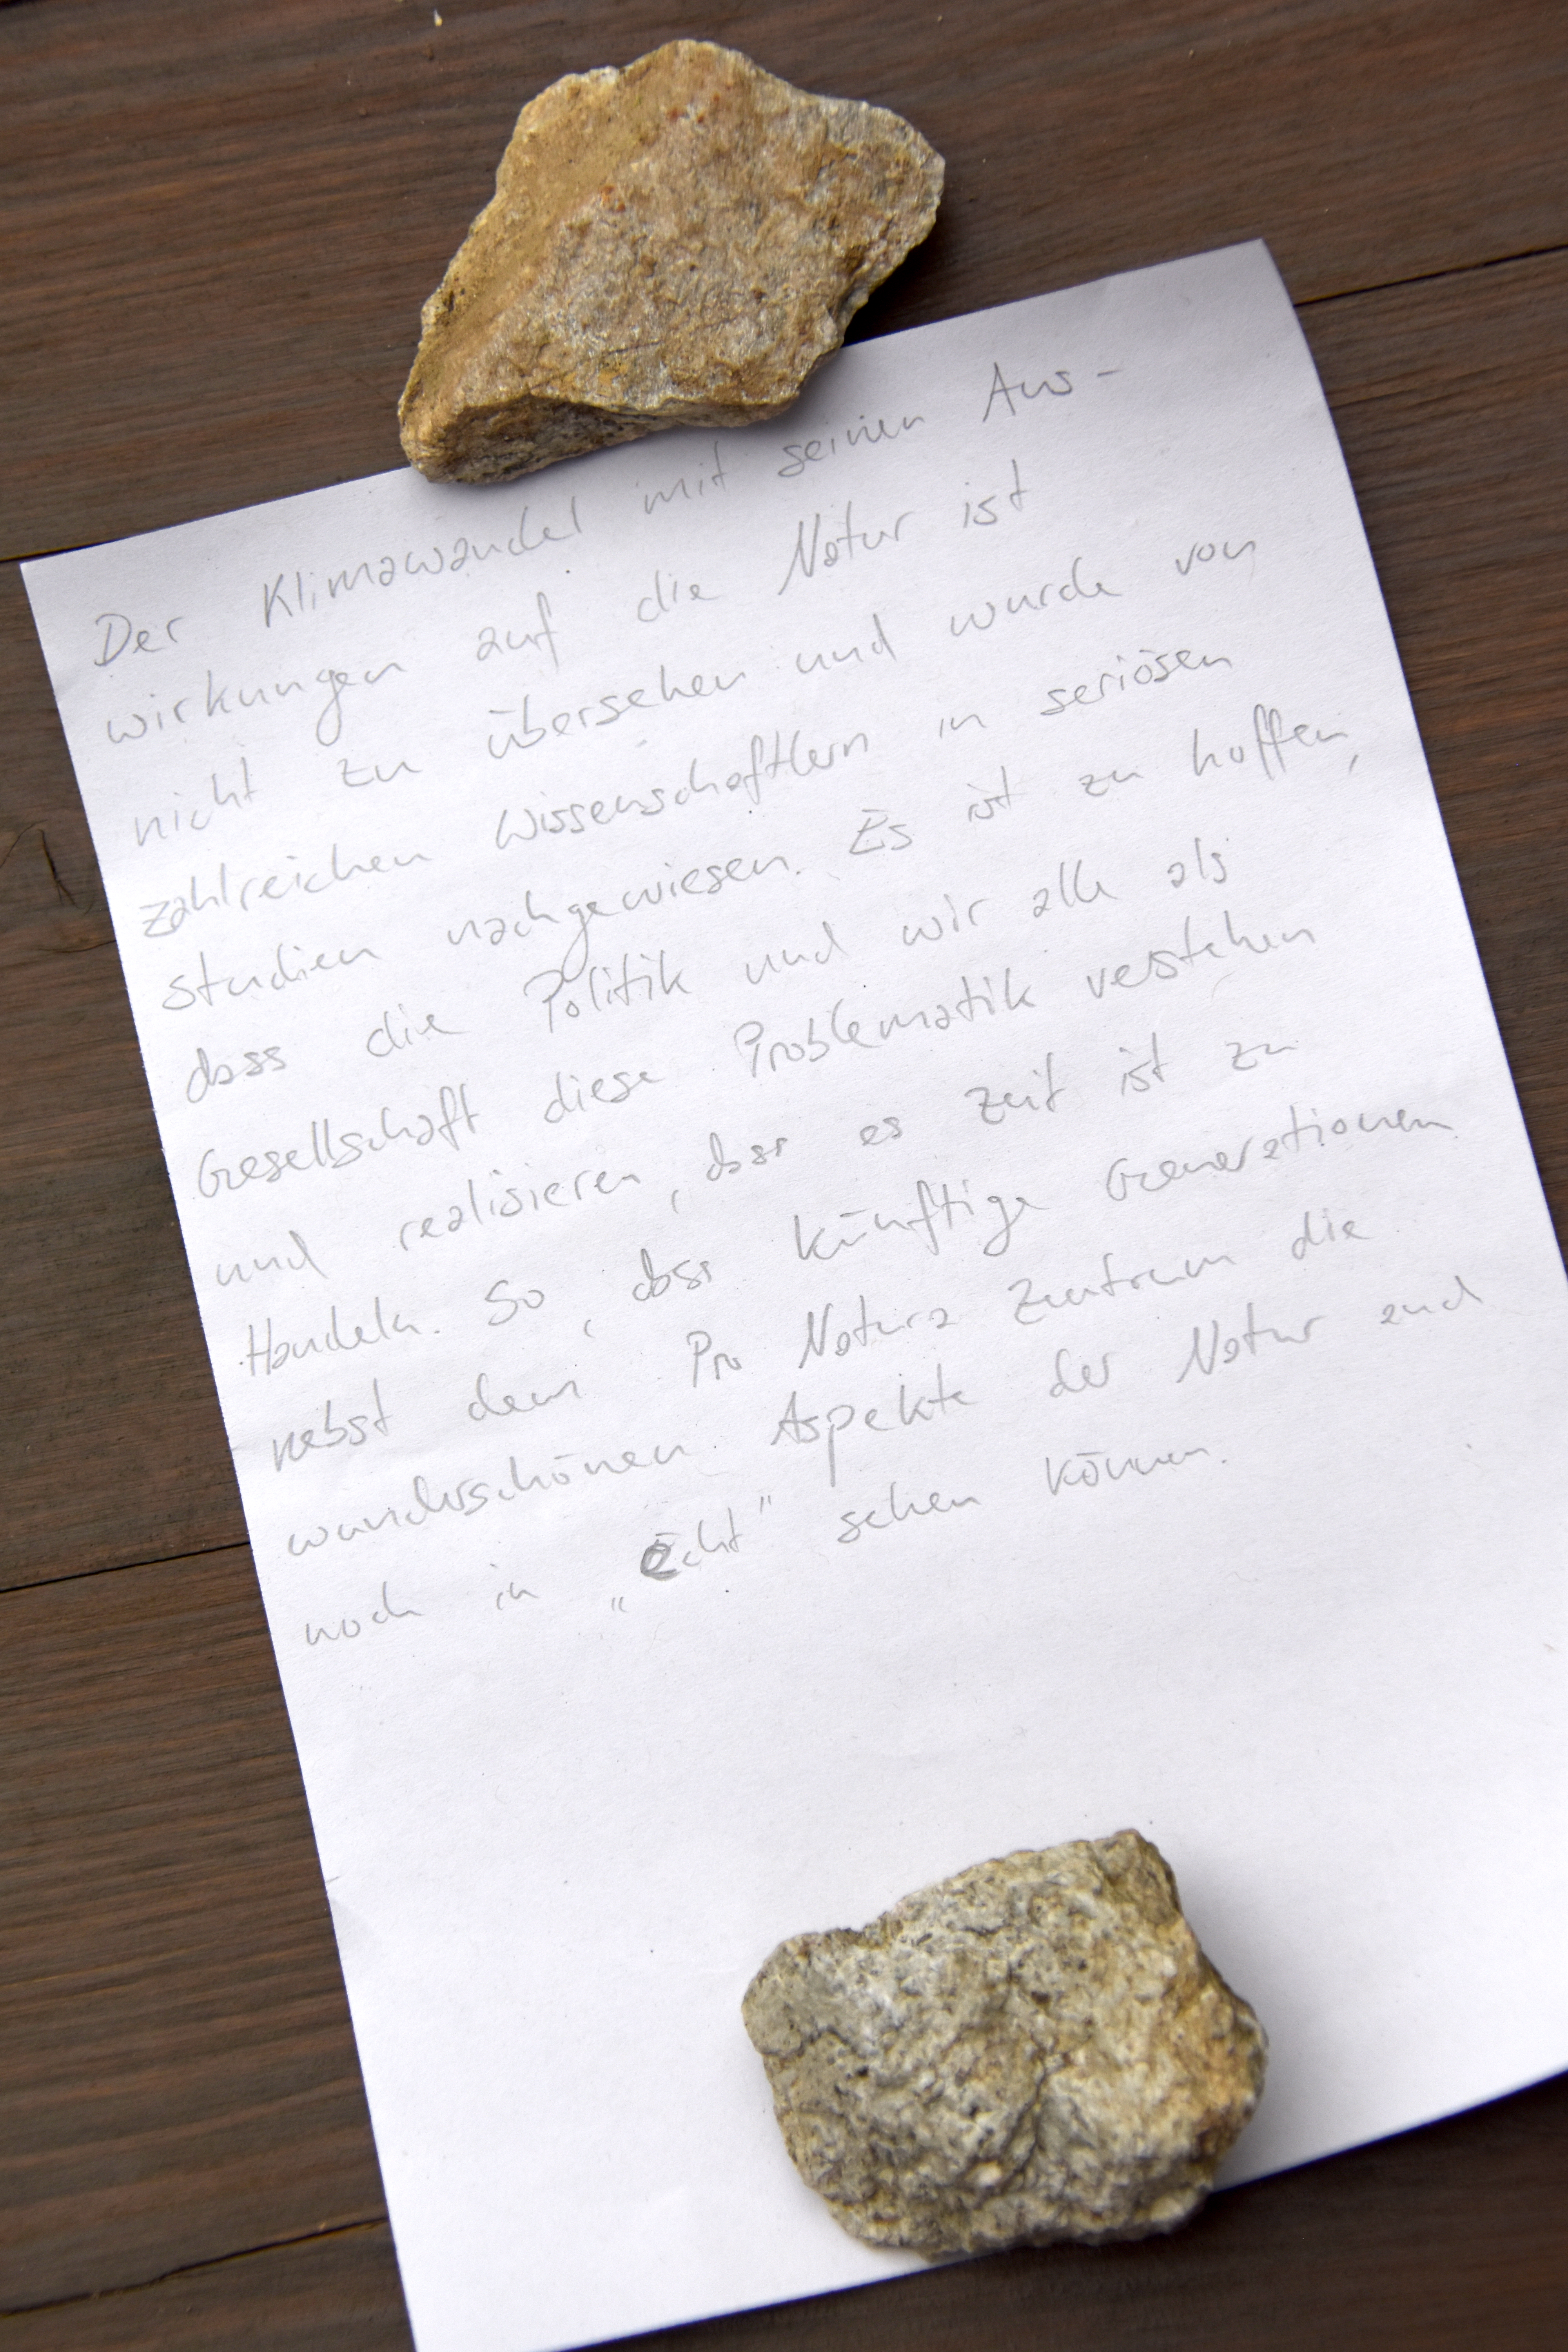 Der Klimawandel mit seinen Aus-
wirkungen auf die Natur ist
nicht zu übersehen und wurde von
zahlreichen Wissenschaftlern in seriösen
Studien nachgewiesen. Es ist zu hoffen,
dass die Politik und wir alle als
Gesellschaft diese Problematik verstehen
und realisieren, dass es Zeit ist zu
Handeln. So, dass künftige Generationen
nebst dem Pro Natura Zentrum die
wunderschönen Aspekte der Natur auch
noch in „echt" sehen können.